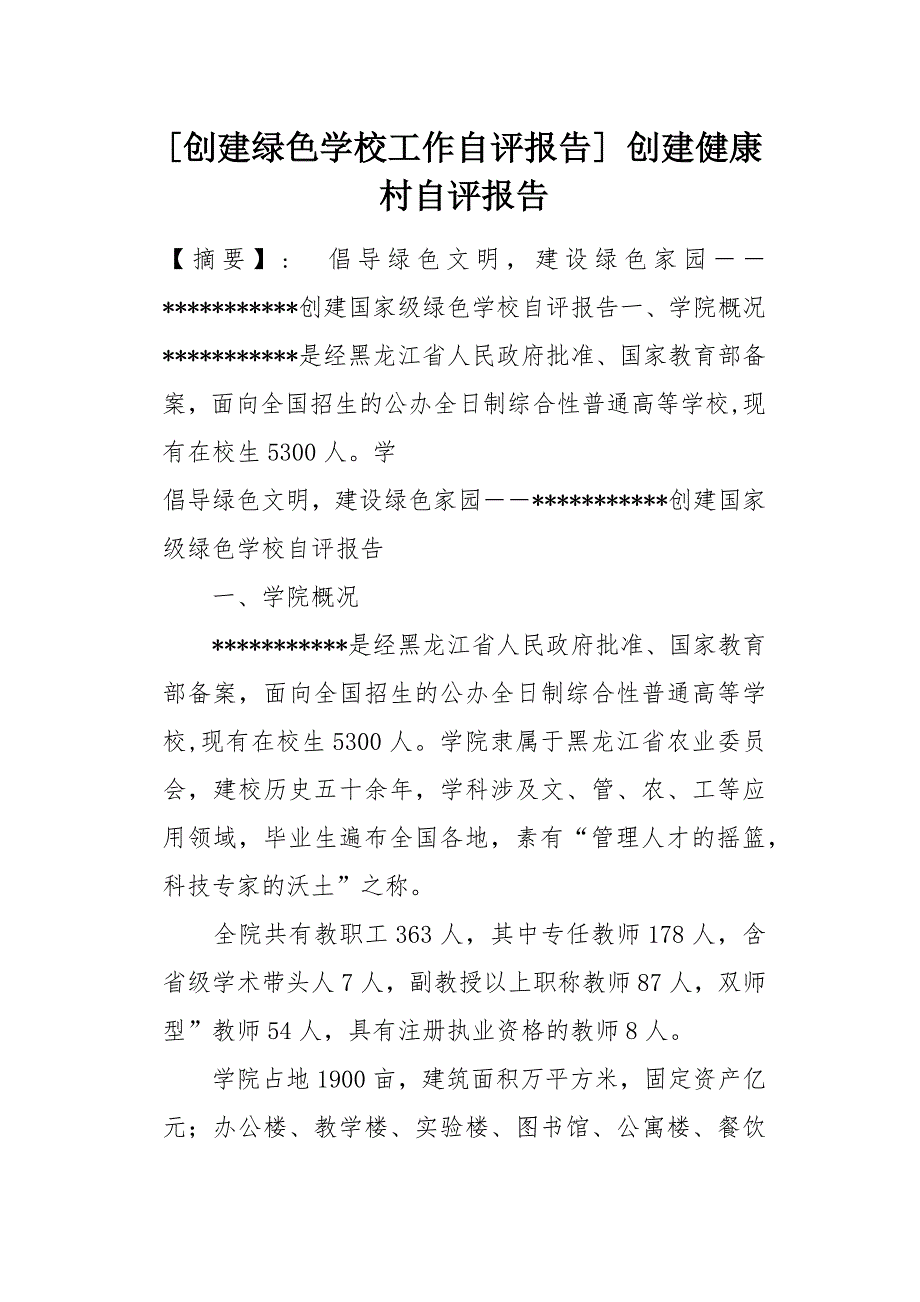 [创建绿色学校工作自评报告] 创建健康
村自评报告
【摘要】： 倡导绿色文明，建设绿色家园－－
***********创建国家级绿色学校自评报告一、学院概况
***********是经黑龙江省人民政府批准、国家教育部备
案，面向全国招生的公办全日制综合性普通高等学校,现
有在校生 5300 人。学
倡导绿色文明，建设绿色家园－－***********创建国家
级绿色学校自评报告
一、学院概况
***********是经黑龙江省人民政府批准、国家教育
部备案，面向全国招生的公办全日制综合性普通高等学
校,现有在校生 5300 人。学院隶属于黑龙江省农业委员
会，建校历史五十余年，学科涉及文、管、农、工等应
用领域，毕业生遍布全国各地，素有“管理人才的摇篮，
科技专家的沃土”之称。
全院共有教职工 363 人，其中专任教师 178 人，含
省级学术带头人 7 人，副教授以上职称教师 87 人，双师
型”教师 54 人，具有注册执业资格的教师 8 人。
学院占地 1900 亩，建筑面积万平方米，固定资产亿
元；办公楼、教学楼、实验楼、图书馆、公寓楼、餐饮